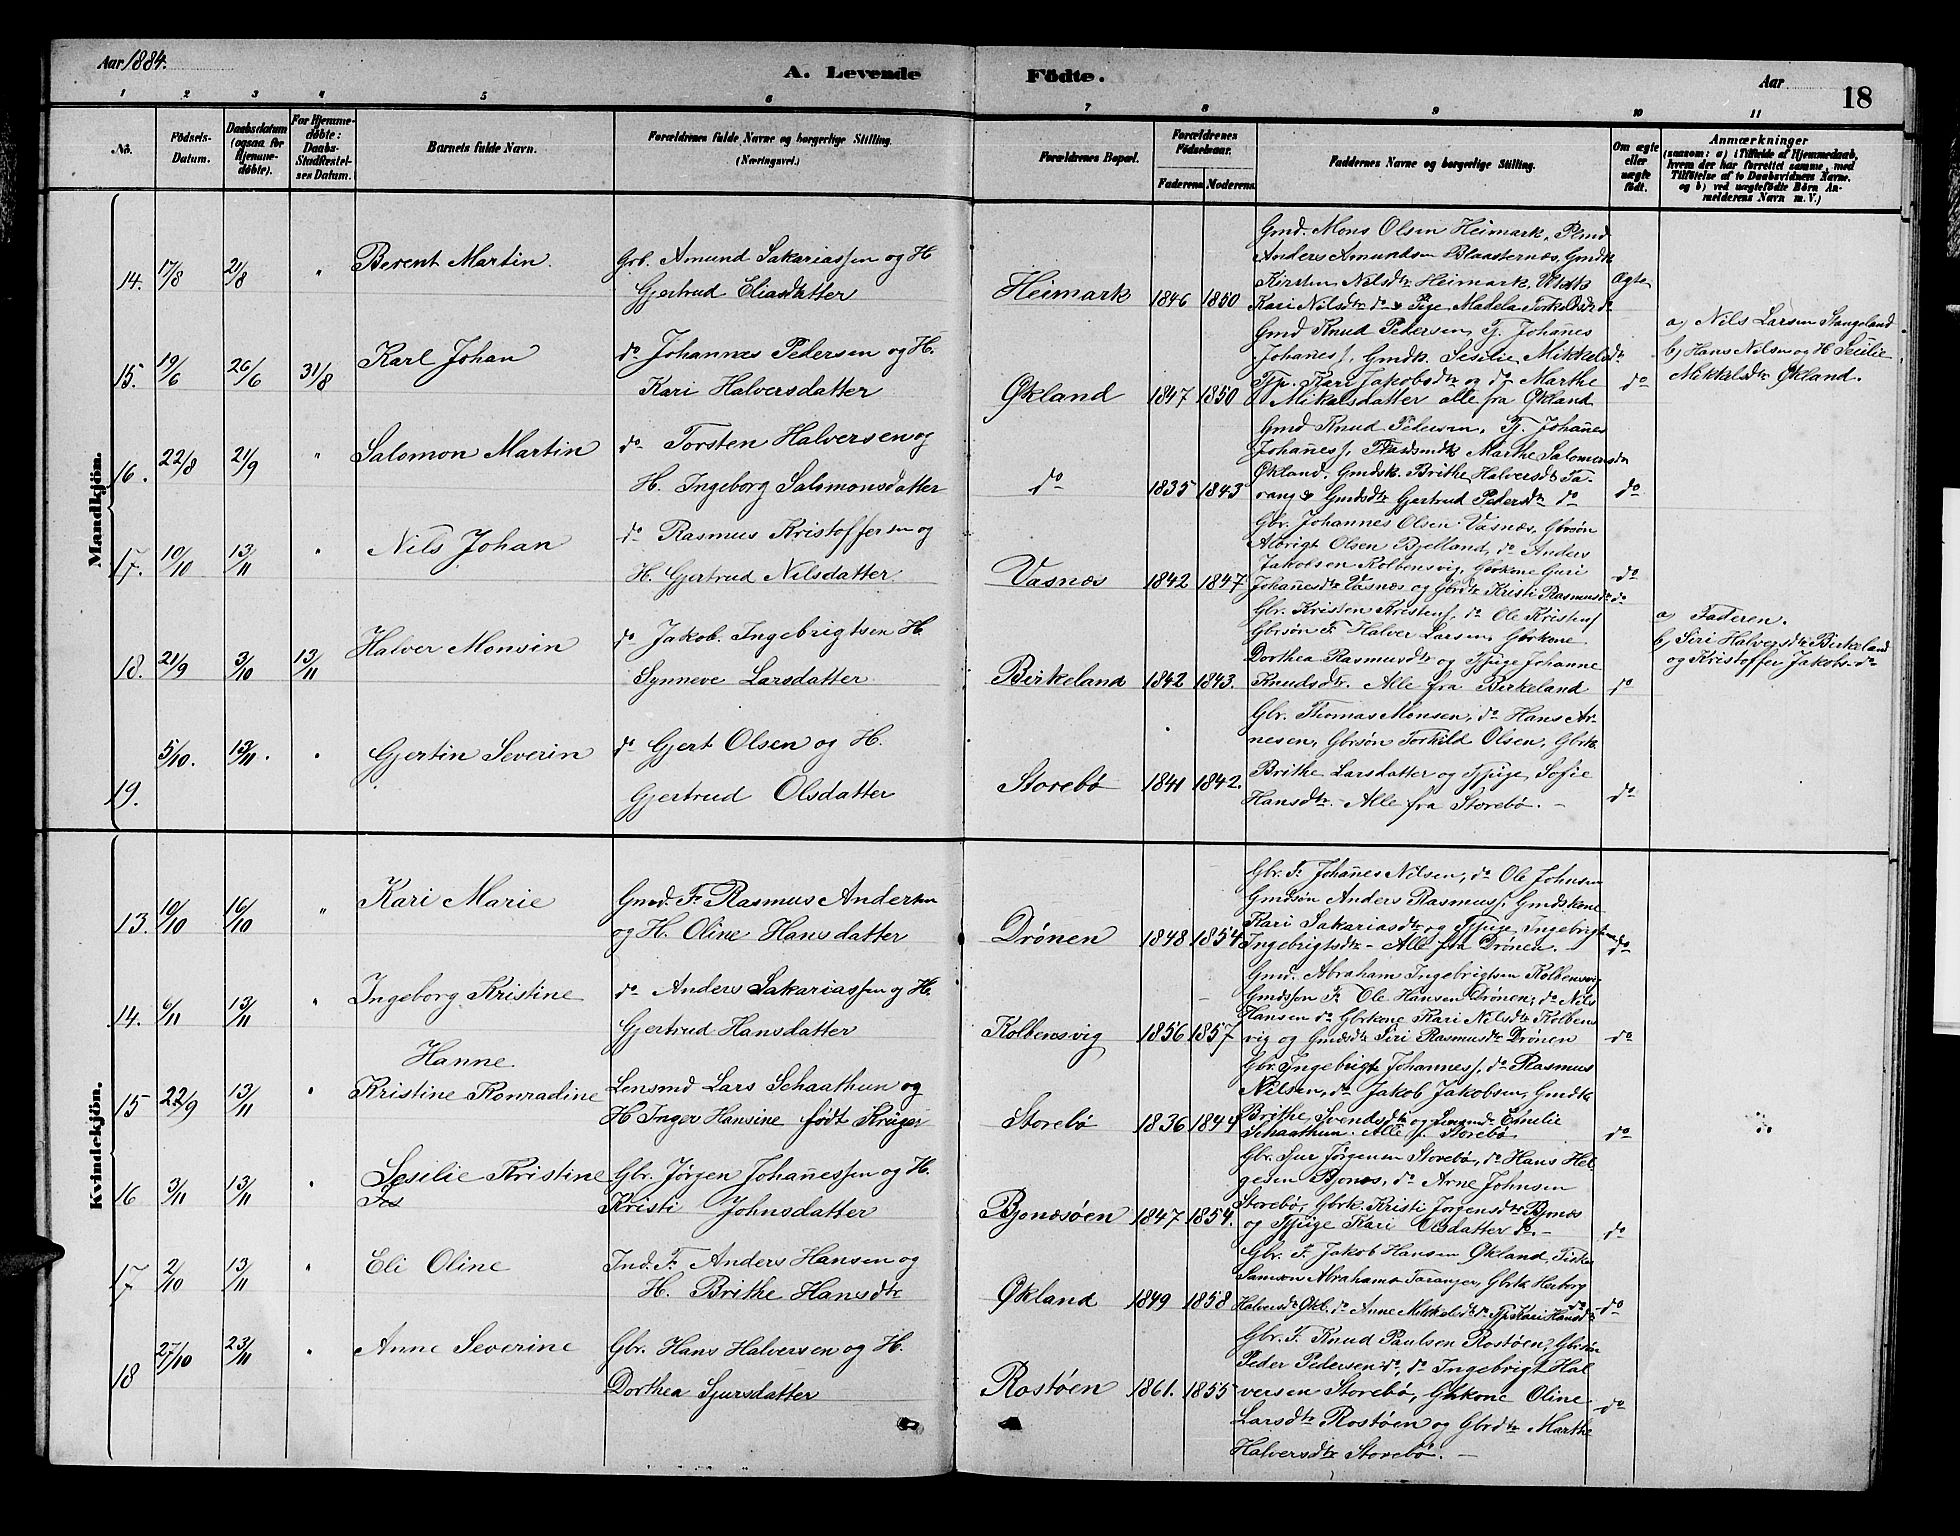 Aar 1884.
A. Levende Födte.
Aar
18
1 2 3 4 5 6 7 8 9 10 11
No.
Fødsels-Datum.
Daabsdatum (ogsaa for Hjemme-døbte).
For Hjemme-døbte: Daabs-Stadfæstel-ses Datum.
Barnets fulde Navn.
Forældrenes fulde Navne og borgerlige Stilling. (Næringsvei.)
Forældrenes Bopæl.
Forældrenes Fødselsaar.
Faderens Moderens
Faddernes Navne og borgerlige Stilling.
Om ægte eller uægte født.
Anmærkninger
(saasom: a) i Tilfælde af Hjemmedaab,
hvem der har forrettet samme, med
Tilføielse af to Daabsvidners Navne.
og b) ved uægtefødte Børn An-
melderens Navn m. V.)
Mandkjön.
14. 17/8 21/8 " Berent Martin.
Grb. Amund Sakariassen og H
Gjertrud Eliasdatter
Heimark 1846 1850
Gmd. Mons Olsen Heimark, Plmd
Anders Amundsen Blaasternæs, Gmdk
Kirsten Nilsdtr Heimark,
Kari Nilsdtr do & Pige Madela Torkelsdtr do
Ægte
15. 19/6 26/6 31/8 Karl Johan
do Johannes Pedersen og H.
Kari Halversdatter
Økland 1847 1850
Gmd Knud Pedersen, Tj. Johañes
Johanes/, Gmdk. Sesilie Mikkelsdtr
Tjp. Kari Jakobsdtr og do Marthe
Mikalsdatter alle fra Økland
do
a) Nils Larsen Stangeland
b) Hans Nilsen og H Secilie
Mikkelsdtr Økland.
16. 22/8 21/9 " Salomon Martin
do Torsten Halversen og
H. Ingeborg Salomonsdatter
do 1835 1843
Gmd Knud Pedersen, Tj. Johañes
Johañes/, Pladsmdk Marthe Salomonsdtr
Økland. Gmdsk. Brithe Halversdtr Ta-
rang & Gmdsdtr Gjertrud Pedersdtr do
do
17. 10/10 13/11 " Nils Johan
do Rasmus Kristoffersen og
H. Gjertrud Nilsdatter.
Vasnæs 1842 1847
Gbr. Johannes Olsen Vasnæs, Gbrsön
Albrigt Olsen Bjelland, do Anders
Jakobsen Kolbensvig, Gbrkone Guri
Johañesdtr Vasnæs og Gbrdtr Kristi Rasmusdtr do
do
18. 21/9 3/10 13/11 Halver Monsin
do Jakob Ingebrigtsen H.
Synneve Larsdatter
Birkeland 1842 1843.
Gbr. Kristen Kristens/, do Ole Kristens/
Gbrsön F. Halver Larsen, Gbrkone
Dorthea Rasmusdtr og Tjpige Johanne
Knudsdtr. Alle fra Birkeland
do
a) Faderen.
b) Siri Halversdtr Birkeland
og Kristoffer Jakobs- do
19. 5/10. 13/11. " Gjertin Severin
do Gjert Olsen og H.
Gjertrud Olsdatter
Storebø 1841 1842.
Gbr. Thomas Monsen, do Hans Ar-
nesen, Gbrsön Torkild Olsen, Gbrk.
Brithe Larsdatter og Tjpige Sofie
Hansdtr. - Alle fra Storebø. -
do
Kvindekjön.
13. 10/10 16/10 " Kari Marie
Gmd. F. Rasmus Andersen
og H. Oline Hansdatter
Drönen 1848 1854
Gbr. F. Johañes Nilsen, do Ole Johnsen
Gmdsön Anders Rasmus/, Gmdskone
Kari Sakariasdtr og Tjpige
Ingebrigtsdtr - Alle fra Drönen.
do
14. 6/11 13/11 " Ingeborg Kristine
do Anders Sakariassen og H.
Gjertrud Hansdatter
Kolbensvig 1856 1857
Gmd. Abraham Ingebrigtsen Kolbensvig
Gmdssøn F. Ole Hansen Drönen, do Nils
Hansen do Gbrkone Kari Nilsdtr Kolbens
vig og Gmdsdtr Siri Rasmusdtr Drönen
do
15 22/9 13/11 " Hanne
Kristine Konradine
Lensmd Lars Schaathun og
H Inger Hansine født Krüger
Storebø 1836 1844
Gbr. Ingebrigt Johannes/, do Rasmus
Nilsen, do Jakob Jakobsen, Gmdk
Brithe Svendsdtr og Emelie
Schaathun. Alle f. Storebø
do
16 3/11 13/11 " Sesilie Kristine
Gbr. Jørgen Johañessen og H.
Kristi Johnsdatter
Bjonæsöen 1847 1854.
Gbr. Sjur Jørgensen Storebø, do Hans Hel-
gesen Bjonæs, do Arne Johnsen
Storebø, Gbrk. Kristi Jørgensdtr Bjonæs
og Tjpige Kari Olsdatter do -
do
17 2/10 13/11 " Eli Oline
Ind. F. Anders Hansen og
H. Brithe Hansdtr
Økland 1849 1858
Gbr. F. Jakob Hansen Økland, Fisker
Samson Abrahams Taranger, Gbrk Herborg
Halversdtr Økl. do Anne Mikkelsdtr do Tjp Kari Hansdtr do
do
18 27/10 23/11 " Anne Severine
Gbr. Hans Halversen og H.
Dorthea Sjursdatter
Rostøen 1861. 1855
Gbr. F. Knud Paulsen Rostøen, Gbrsön
Peder Pedersen do, do Ingebrigt Hal
versen Storebø, Gbkone Oline
Larsdtr Rostøen og Gbrdtr Marthe
Halversdtr Storebø. -
do